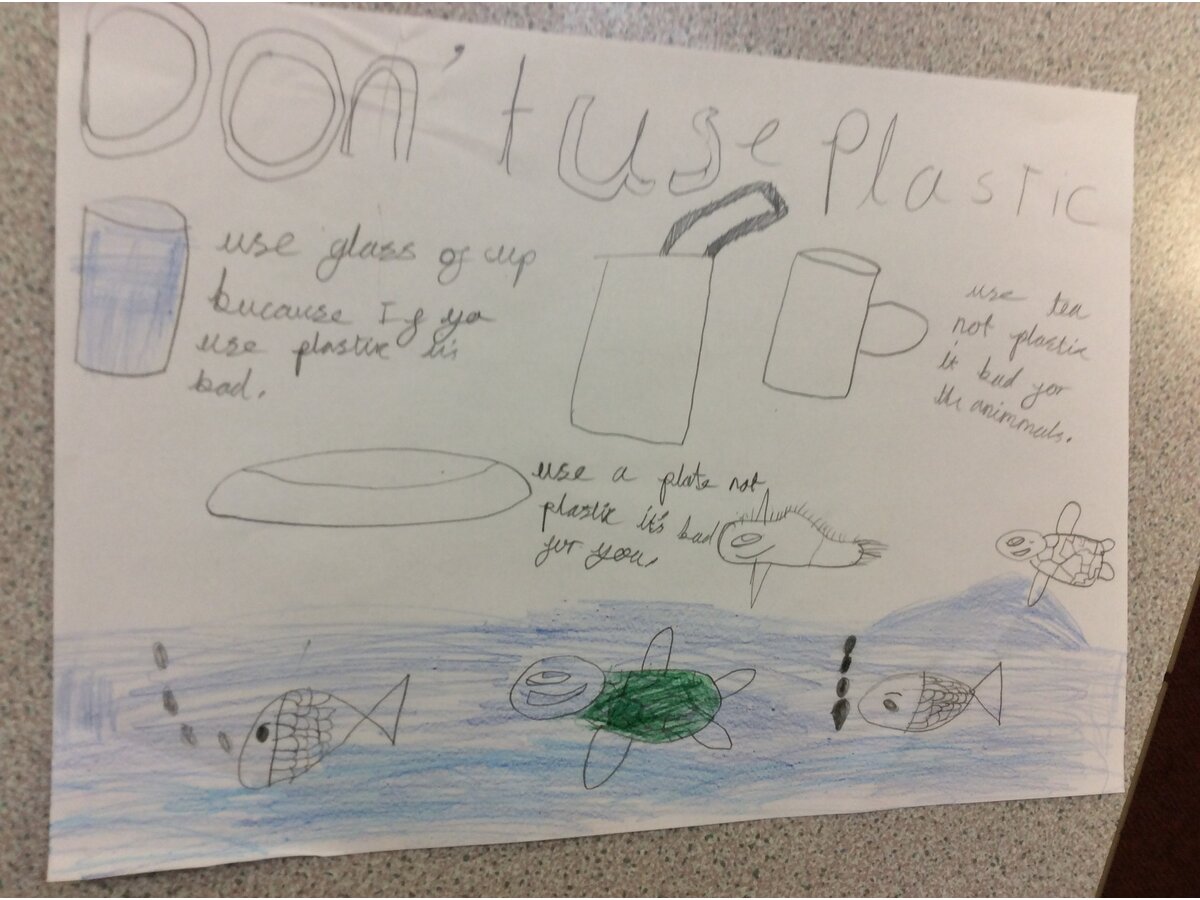 Don't use Plastic
use glass of cup
bucause If yo
use plastic it's
bad.
use tea
not plastic
it bad for
the animmals.
use a plate not
plastic it's bad
for you.